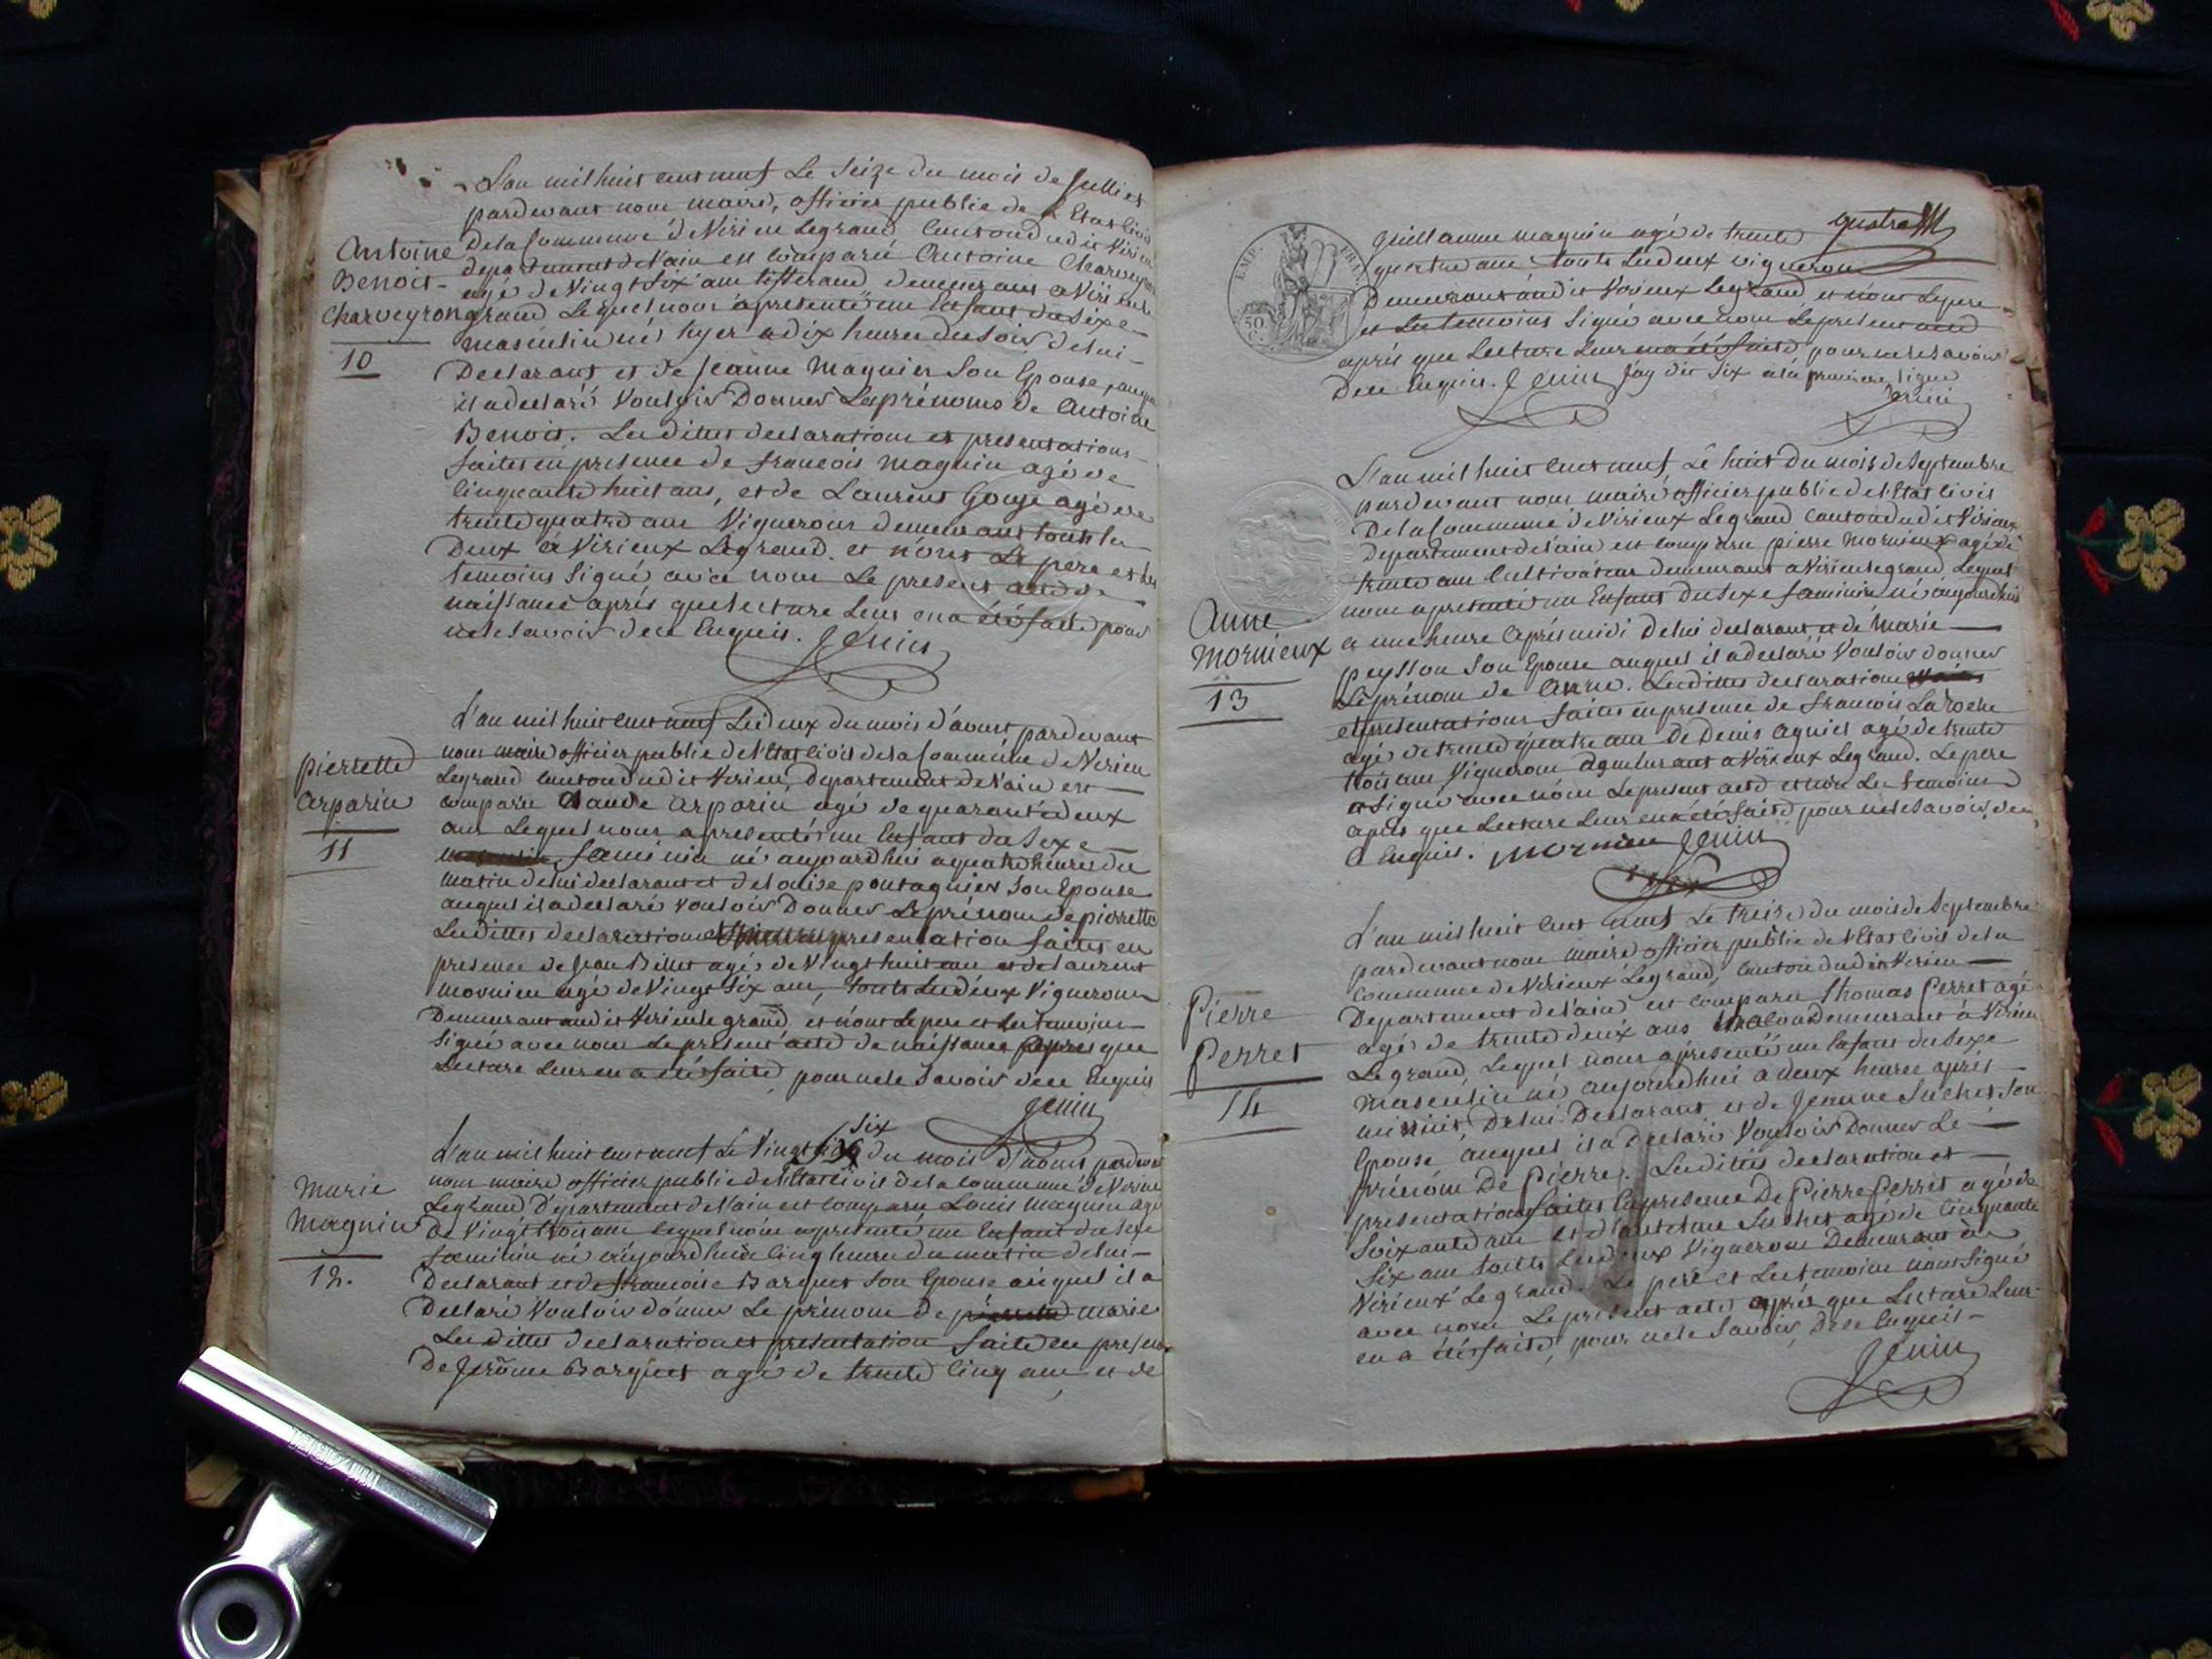 L'an mil huit cent neuf Le Seize du mois de Juillet
pardevant nous maire, officier public de L'Etat Civil
Antoine
Benoit
Charveyron
10
de la Commune de Virieu Legrand Canton dudit Virieu
departement de l'ain est Comparu Antoine Charveyron
agé de Vingt Six ans tisserand demeurant a Virieu le
grand Lequel nous a presenté un Enfant du Sexe
masculin né hyer a dix heures du Soir de lui
Declarant et de Jeanne Magnin Son Epouse, auquel
il a declaré Vouloir Donner Les prénoms de Antoine
Benoit. Les dittes declarations et presentations
faites en presence de françois Magnin agé de
Cinquante huit ans, et de Laurent Gouje agé de
trente quatre ans Vignerons demeurants touts les
Deux à Virieux Legrand. et n'ont Le pere et les
temoins Signé avec nous Le present acte de
naissance aprés que lecture Leur en a été faite pour
ne le Savoir de ce Enquis. Jenin
L'an mil huit cent neuf Le Deux du mois d'aoust pardevant
pierrette
arparin
11
nous maire officier public de l'Etat Civil de la Commune de Virieu
Legrand Canton dudit Virieu, Departement de l'ain est
comparu Claude arparin agé de quarante deux
ans Lequel nous a presenté un Enfant du Sexe
faeminin né aujourdhui a quatre heures du
matin de lui declarant et de Louise pontagnier Son Epouse
auquel il a declaré vouloir Donner Le prénom de pierrette
Les dittes declarations et presentation faites en
presence de Jean Billet agé de Vingt huit ans et de Laurent
mornieu agé de Vingt Six ans, touts Les deux Vignerons
Demeurant audit Virieu le grand, et n'ont Le pere et Les temoins
Signé avec nous Le present acte de naissance apres que
Lecture Leur en a été faite, pour ne le Savoir de ce Enquis
Jenin
six
L'an mil huit cent neuf Le Vingt du mois d'aoust pardevant
Marie
Magnin
12.
nous maire officier public de l'Etat Civil de la Commune de Virieu
Legrand Département de l'ain est Comparu Louis Magnin agé
de Vingt trois ans Lequel nous a presenté un Enfant du Sexe
faeminin né aujourdhui a Cinq heures du matin de lui
Declarant et de francoise Barquet Son Epouse auquel il a
Declaré Vouloir donner Le prénom de pierrette marie
Les dittes declaration et presentation faite en presence
De Jerôme Barquet agé de trente Cinq ans et de
EMP. FRAN.
50
Guillaume magnin agé de trente quatre
quatre ans touts Les deux vignerons
Demeurants audit Virieux Legrand, et n'ont Le pere
et Les temoins Signé avec nous Le present acte
aprés que Lecture Leur en a été faite pour ne le savoir
De ce Enquis. Jenin Jay dit Six a la premiere ligne
Jenin
L'an mil huit cent neuf Le huit du mois de Septembre
pardevant nous maire officier public de l'Etat Civil
De la Commune de Virieux Legrand Canton dudit Virieux
Departement de l'ain est Comparu pierre Mornieux agé de
trente ans Cultivateur demeurant a Virieu legrand Lequel
nous a presenté un Enfant du Sexe faminin né aujourdhui
Anne
Mornieux
13
a une heure Aprés midi de lui declarant et de Marie
peysson Son Epouse auquel il a declaré Vouloir donner
Le prénom de Anne. Les dittes declarations
et presentations faites en presence de francois La roche
agé de trente quatre ans De Denis agniel agé de trente
trois ans Vignerons Demeurant a Virieux Legrand. Le pere
a Signé avec nous Le present acte et non Les temoins
aprés que Lecture Leur en a été faite pour ne le Savoir, de
Ce Enquis. mornieu Jenin
L'an mil huit Cent neuf Le treize du mois de Septembre
pardevant nous maire officier public de l'Etat Civil de la
Commune de Virieux Legrand, Canton dudit Virieu
Pierre
Perret
14
Departement de l'ain est comparu Thomas Perret agé
agé de trente deux ans Demeurant à Virieu
Le grand, Lequel nous a presenté un Enfant du Sexe
masculin né aujourdhui a deux heures aprés
minuit, De lui Declarant et de Jeanne Suchet, Son
Epouse auquel il a Declaré Vouloir Donner Le
prénom De Pierre. Les dittes declaration et
presentation faites En presence De Pierre Perret agé de
Soixante ans et d'antelme Suchet agé de Cinquante
Six ans touts Les deux Vignerons Demeurant à
Virieux Le grand. Le pere et Les temoins n'ont Signé
avec nous Le present acte aprés que Lecture Leur
en a été faite, pour ne le Savoir, De ce Enquis
Jenin